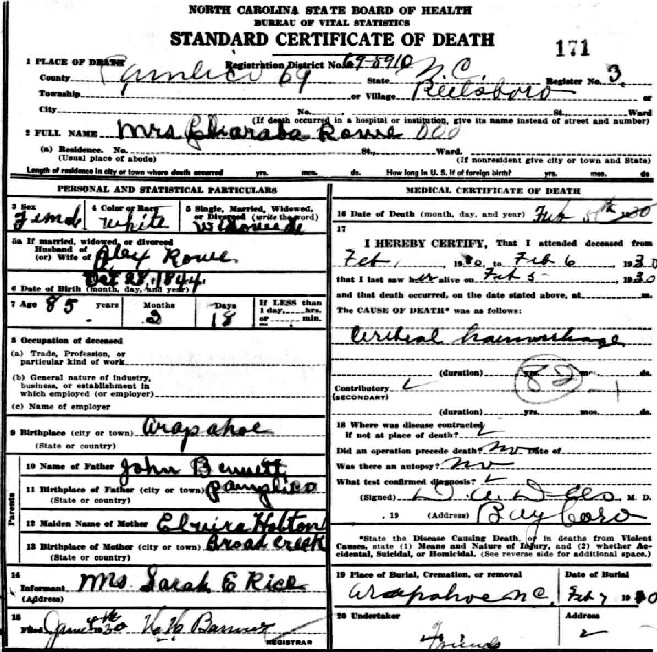 NORTH CAROLINA STATE BOARD OF HEALTH
BUREAU OF VITAL STATISTICS
STANDARD CERTIFICATE OF DEATH
171
1 PLACE OF DEATH Registration District No. 69-5910
County Pamlico 69 State N.C. Register No. 3
Township or Village Reelsboro or
City No. St., Ward
(If death occurred in a hospital or institution, give its name instead of street and number)
2 FULL NAME Mrs Rowe
(a) Residence. No. St., Ward.
(Usual place of abode) (If nonresident give city or town and State)
Length of residence in city or town where death occurred yrs. mos. ds. How long in U. S. if of foreign birth? yrs. mos. ds.
PERSONAL AND STATISTICAL PARTICULARS
3 Sex 4 Color or Race 5 Single, Married, Widowed, or Divorced (write the word)
Female White Widowed
5a If married, widowed, or divorced
Husband of
(or) Wife of Alex Rowe
Oct 28, 1844
6 Date of Birth (month, day, and year)
7 Age 85 years Months 3 Days 18 If LESS than 1 day, hrs. or min.
8 Occupation of deceased
(a) Trade, Profession, or particular kind of work
(b) General nature of Industry, business, or establishment in which employed (or employer)
(c) Name of employer
9 Birthplace (city or town) Arapahoe
(State or country)
10 Name of Father John Bennett
11 Birthplace of Father (city or town) Pamplico
(State or country)
12 Maiden Name of Mother Elvira Holton
13 Birthplace of Mother (city or town) Broad Creek
(State or country)
Parents
14
Informant Mrs Sarah E Rice
(Address)
15
Filed 30
REGISTRAR
MEDICAL CERTIFICATE OF DEATH
16 Date of Death (month, day, and year) Feb 1930
17
I HEREBY CERTIFY, That I attended deceased from
Feb, 1930 to Feb 6 1930
that I last saw her alive on Feb 5 1930
and that death occurred, on the date stated above, at m.
The CAUSE OF DEATH* was as follows:
haemorrhage
(duration) yrs. mos. ds.
82
Contributory
(SECONDARY)
(duration) yrs. mos. ds.
18 Where was disease contracted
if not at place of death?
Did an operation precede death? No Date of
Was there an autopsy? No
What test confirmed diagnosis?
(Signed) M. D.
, 19 (Address) Bayboro
*State the Disease Causing Death, or in deaths from Violent Causes, state (1) Means and Nature of Injury, and (2) whether Accidental, Suicidal, or Homicidal. (See reverse side for additional space.)
19 Place of Burial, Cremation, or removal Date of Burial
Arapahoe N.C. Feb 7 1930
20 Undertaker Address
Friends